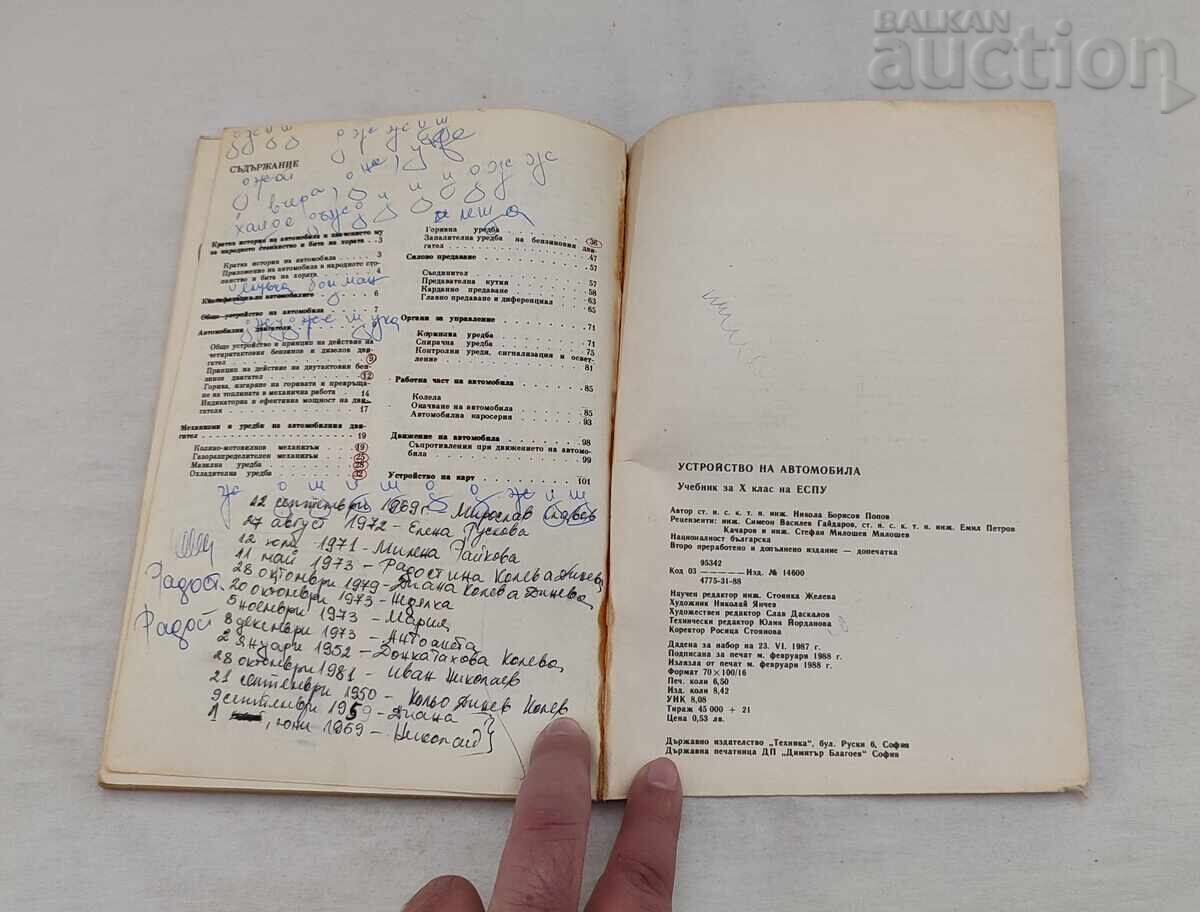 BALKAN
auction
СЪДЪРЖАНИЕ
вчера,
Кратка история на автомобила и значението му
за народното стопанство и бита на хората . . . 3
Кратка история на автомобила . . . 3
Приложение на автомобила в народното сто-
панство и бита на хората . . . 4
Класификация на автомобилите . . . 6
Общо устройство на автомобила . . . 7
Автомобилни двигатели
Общо устройство и принцип на действие на
четиритактовия бензинов и дизелов дви-
гател . . . 9
Принцип на действие на двутактовия бен-
зинов двигател . . . 12
Горива, изгаряне на горивата и превръща-
не на топлината в механична работа . . 14
Индикаторна и ефективна мощност на дви-
гателя . . . 17
Механизми и уредби на автомобилния дви-
гател . . . 19
Коляно-мотовилков механизъм . . . 19
Газоразпределителен механизъм . . . 25
Мазилна уредба . . . 28
Охладителна уредба . . . 32
Горивна уредба . . . 36
Запалителна уредба на бензиновия дви-
гател . . . 47
Силово предаване . . . 57
Съединител . . . 57
Предавателна кутия . . . 58
Карданно предаване . . . 63
Главно предаване и диференциал . . . 65
Органи за управление . . . 71
Кормилна уредба . . . 71
Спирачна уредба . . . 75
Контролни уреди, сигнализация и освет-
ление . . . 81
Работна част на автомобила . . . 85
Колела . . . 85
Окачване на автомобила . . . 93
Автомобилна каросерия
Движение на автомобила . . . 98
Съпротивления при движението на автомо-
била . . . 99
Устройство на карт . . . 101
22 септември 1969 г. Мирослав Славов
27 август 1972 – Елена Гускова
12 юли 1971 – Милена Райкова
11 май 1973 – Радостина Колева Динева
28 октомври 1979 – Диана Колева Динева
20 октомври 1973 – Жоянка
5 ноември 1973 – Мария
8 декември 1973 – Антоанета
2 януари 1952 – Донка Колева
28 октомври 1981 – Иван Николаев
21 септември 1950 – Кольо Динев Колев
9 септември 1959 – Диана
1 юни 1969 – Николай
Радост.
Радост
УСТРОЙСТВО НА АВТОМОБИЛА
Учебник за X клас на ЕСПУ
Автор ст. н. с. к. т. н. инж. Никола Борисов Попов
Рецензенти: инж. Симеон Василев Гайдаров, ст. н. с. к. т. н. инж. Емил Петров
Качаров и инж. Стефан Милошев Милошев
Националност българска
Второ преработено и допълнено издание — допечатка
95342
Код 03 ———— Изд. № 14600
4775-31-88
Научен редактор инж. Стоянка Желева
Художник Николай Янчев
Художествен редактор Слав Даскалов
Технически редактор Юлия Йорданова
Коректор Росица Стоянова
Дадена за набор на 23. VI. 1987 г.
Подписана за печат м. февруари 1988 г.
Излязла от печат м. февруари 1988 г.
Формат 70×100/16
Печ. коли 6,50
Изд. коли 8,42
УИК 8,08
Тираж 45 000 + 21
Цена 0,53 лв.
Държавно издателство „Техника“, бул. Руски 6, София
Държавна печатница ДП „Димитър Благоев“ София